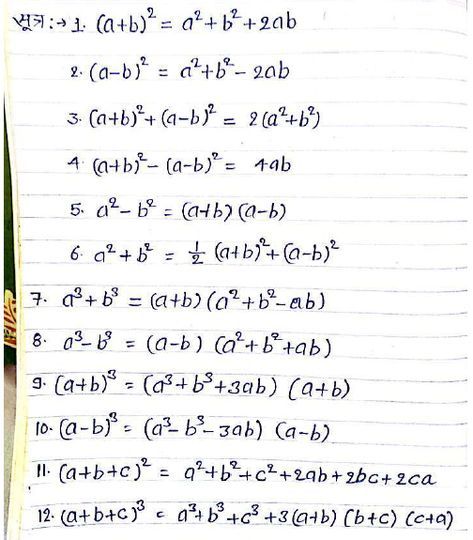 सूत्र:→ 1. (a+b)² = a²+b²+2ab
2. (a-b)² = a²+b²-2ab
3. (a+b)²+(a-b)² = 2(a²+b²)
4. (a+b)²-(a-b)² = 4ab
5. a²-b² = (a+b)(a-b)
6. a²+b² = 1/2 (a+b)²+(a-b)²
7. a³+b³ = (a+b)(a²+b²-ab)
8. a³-b³ = (a-b) (a²+b²+ab)
9. (a+b)³ = (a³+b³+3ab) (a+b)
10. (a-b)³ = (a³-b³-3ab) (a-b)
11. (a+b+c)² = a²+b²+c²+2ab+2bc+2ca
12. (a+b+c)³ = a³+b³+c³+3(a+b) (b+c) (c+a)